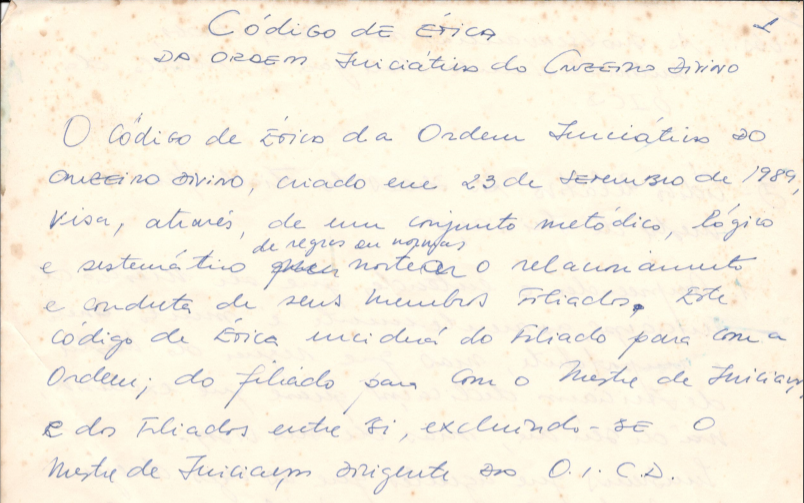 1
Código de Ética
da Ordem Iniciática do Cruzeiro Divino
O Código de Ética da Ordem Iniciática do
Cruzeiro Divino, criado em 23 de Setembro de 1989,
Visa, através, de um conjunto metódico, lógico
de regras ou normas
e sistemático nortear o relacionamento
e conduta de seus membros Filiados. Este
código de Ética incidirá do Filiado para com a
Ordem; do filiado para com o Mestre de Iniciação,
e dos Filiados entre si, excluindo-se o
Mestre de Iniciação Dirigente da O.I.C.D.